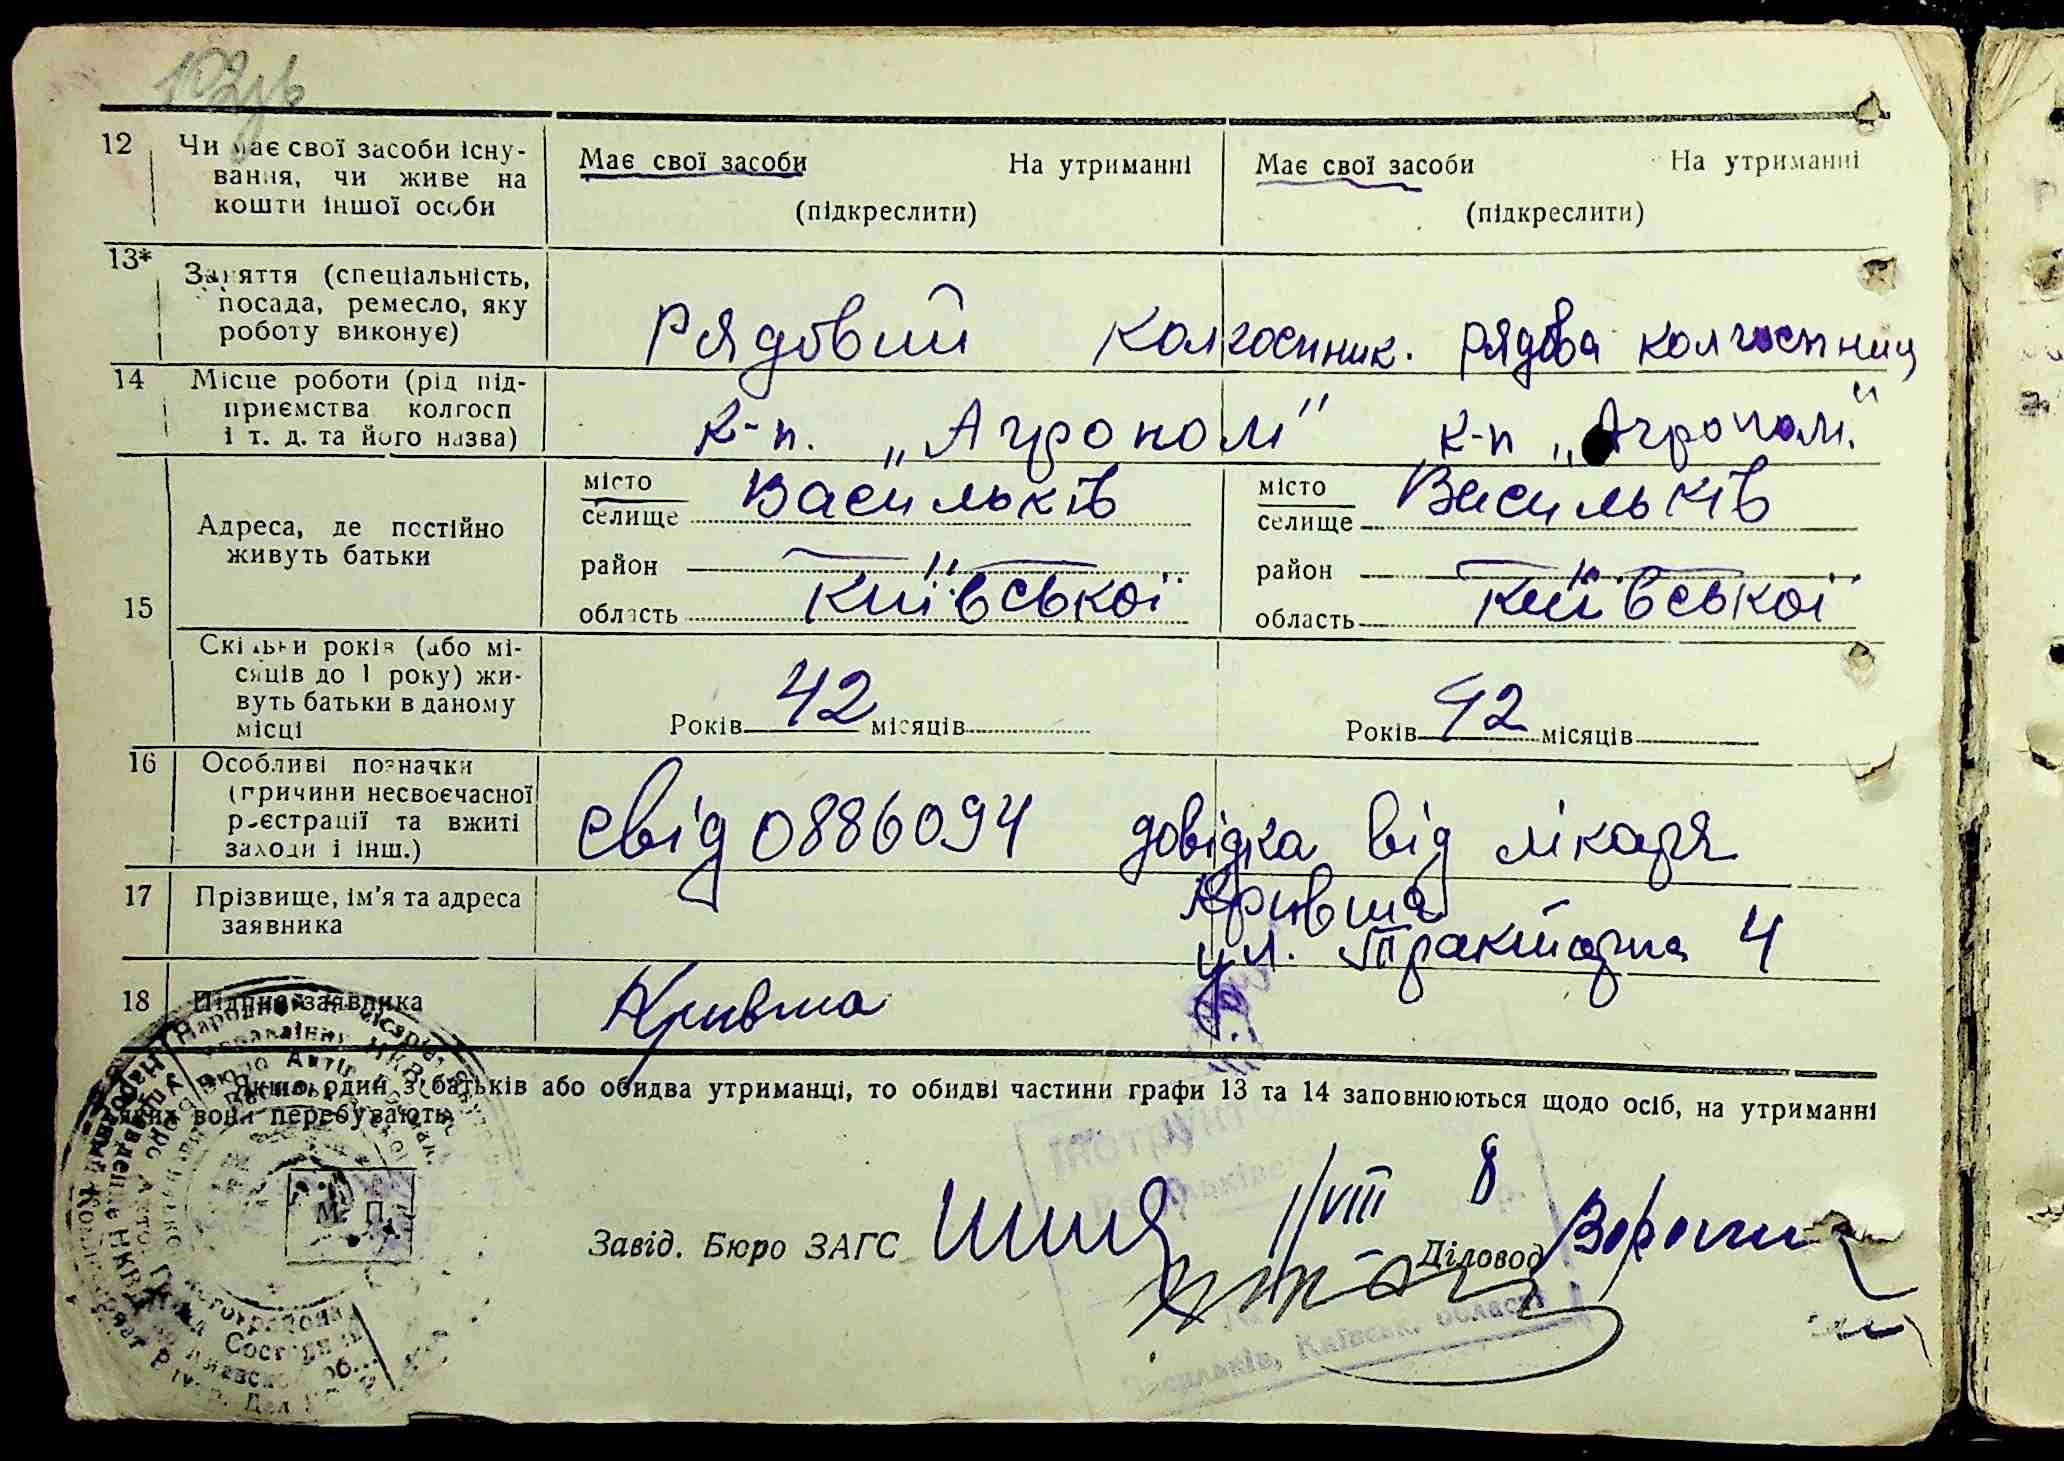 12 Чи має свої засоби існу-
вання, чи живе на
кошти іншої особи
Має свої засоби На утриманні
(підкреслити)
Має свої засоби На утриманні
(підкреслити)
13* Заняття (спеціальність,
посада, ремесло, яку
роботу виконує)
Рядовий колгоспник. рядова колгоспниц
14 Місце роботи (рід під-
приємства колгосп
і т. д. та його назва)
к-п. „Агрополі" к-п „Агрополі."
15
Адреса, де постійно
живуть батьки
місто
селище Васильків
район
область Київської
місто
селище Васильків
район
область Київської
Скільки років (або мі-
сяців до 1 року) жи-
вуть батьки в даному
місці
Років 42 місяців
Років 42 місяців
16 Особливі позначки
(причини несвоєчасної
реєстрації та вжиті
заходи і інш.)
свід 0886094 довідка від лікаря
17 Прізвище, ім'я та адреса
заявника
Кривша
ул. Тракторна 4
18 Підпис заявника
Кривша
* Якщо один з батьків або обидва утриманці, то обидві частини графи 13 та 14 заповнюються щодо осіб, на утриманні
яких вони перебувають.
М. П.
Завід. Бюро ЗАГС
Діловод
1/VIII 8
Васильків, Київськ. області